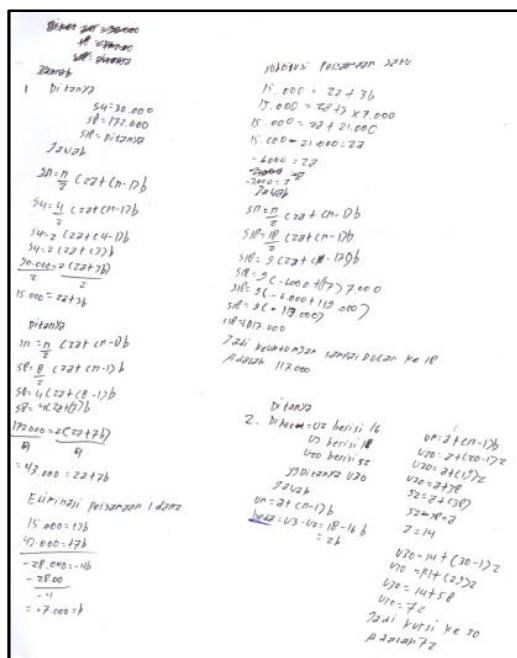 Jawab
1 Ditanya
S4=30.000
S8=172.000
S18=Ditanya
Jawab
Sn=n/2 (2a+(n-1)b
S4=4/2 (2a+(n-1)b
S4=2 (2a+(4-1)b
S4=2 (2a+(3)b
30.000=2(2a+3b)
2 2
15.000=2a+3b
Ditanya
Sn=n/2 (2a+(n-1)b
S8=8/2 (2a+(n-1)b
S8=4(2a+(8-1)b
S8=4(2a+(7)b
172.000=2(2a+7b)
4 4
=43.000=2a+7b
Eliminasi persamaan 1 dan 2
15.000=+3b
43.000=+7b
-28.000=-4b
-28.00
-4
=+7.000=b
subtitusi persamaan satu
15.000=2a+3b
15.000=2a+3×7.000
15.000=2a+21.000
15.000-21.000=2a
-6000=2a
Jawab
Sn=n/2 (2a+(n-1)b
S18=18/2 (2a+(n-1)b
S18=9(2a+(18-1)b
S18=9(-6000+(17)7.000
S18=9(-6.000+119.000)
S18=9(+113.000)
S18=1017.000
Jadi keuntungan sampai bulan ke 18
Adalah 117.000
Ditanya
2. U2 berisi 16
U3 berisi 18
U20 berisi 52
yg Ditanya U30
Jawab
Un=a+(n-1)b
beda=U3-U2=18-16 b
=2b
Un=a+(n-1)b
U20=a+(20-1)2
U20=a+(19)2
U20=a+38
52=a+(38)
52-38=a
a=14
U30=14+(30-1)2
U30=14+(29)2
U30=14+58
U30=72
Jadi kursi ke 30
Adalah 72